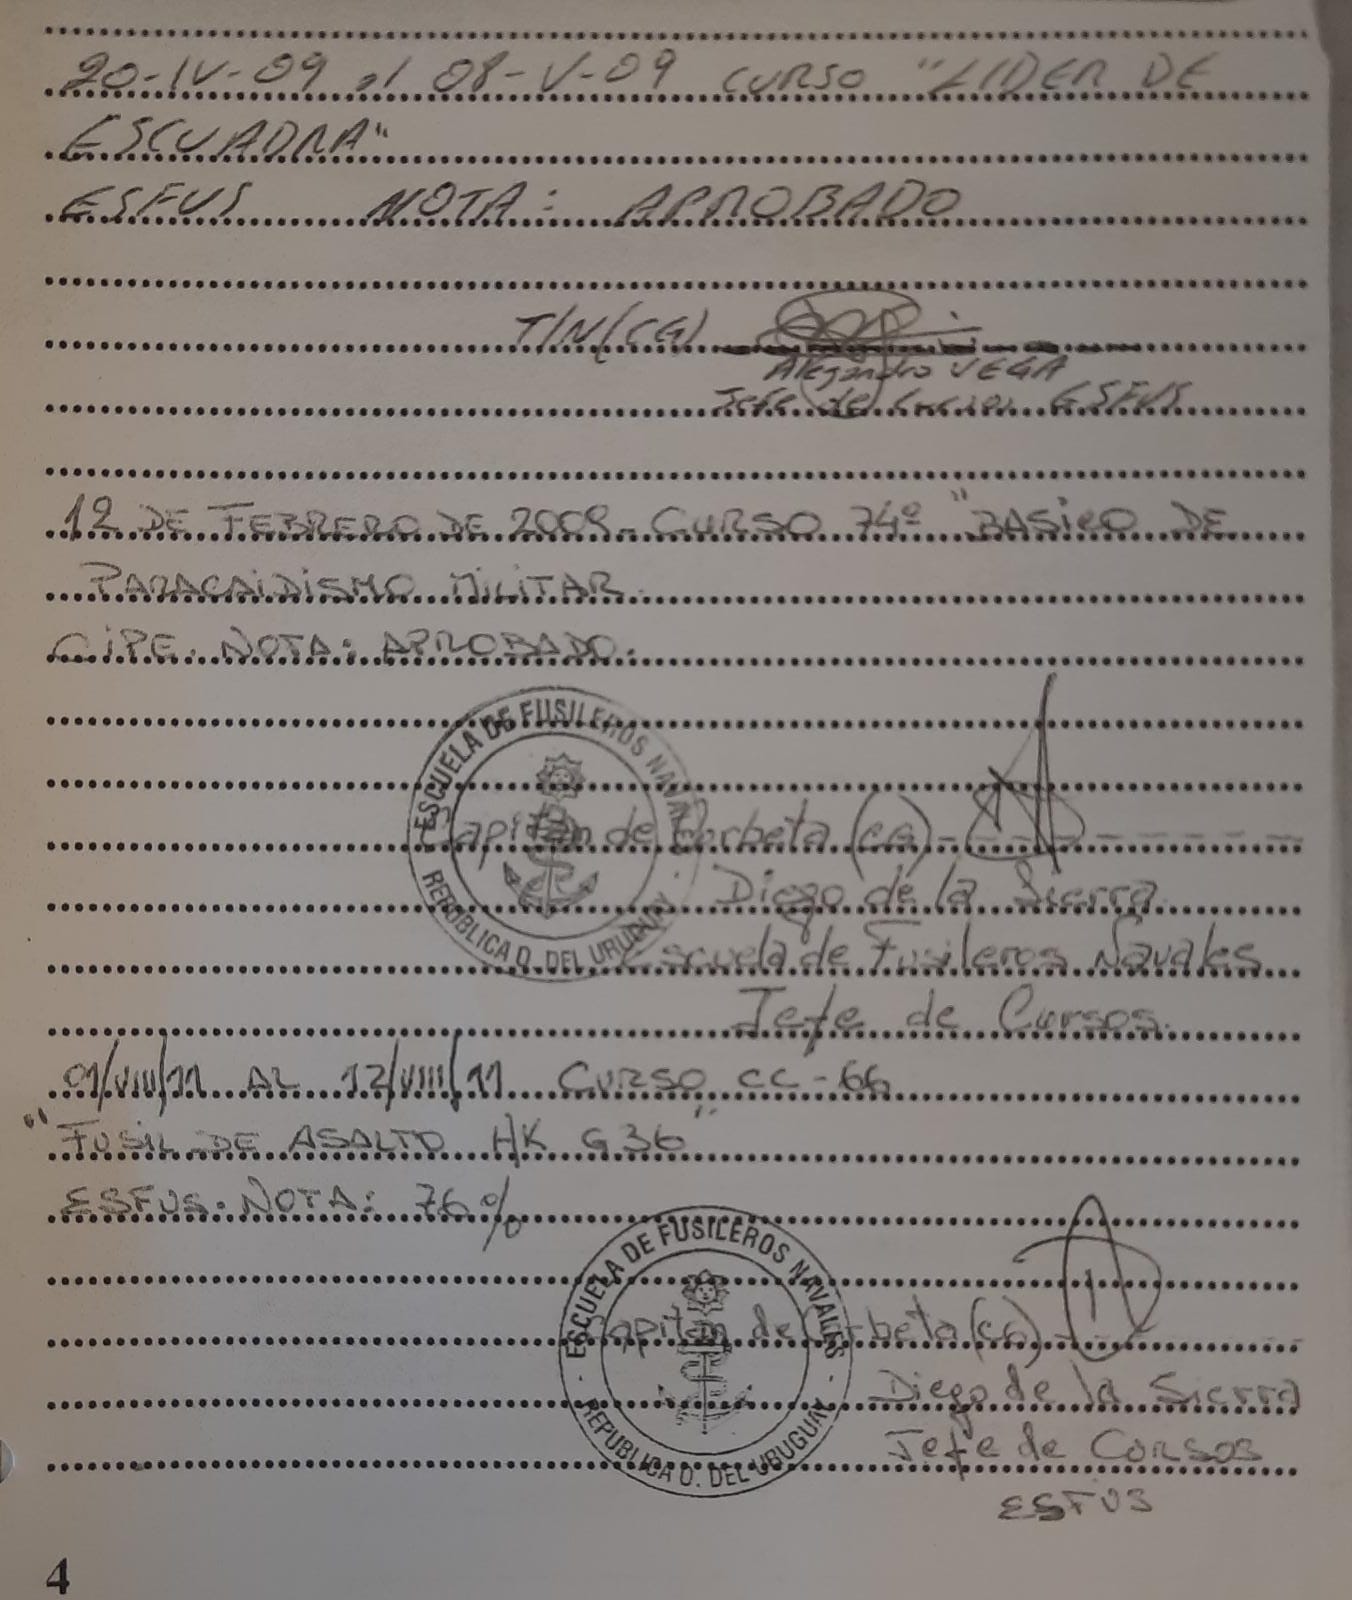 20-IV-09 al 08-V-09 CURSO "LIDER DE
ESCUADRA"
ESFUS NOTA: APROBADO
T/N(CG)
Alejandro VEGA
Jefe de Cursos ESFUS
12 DE FEBRERO DE 2009- CURSO 74º "BASICO DE
PARACAIDISMO MILITAR.
CIPE. NOTA: APROBADO.
ESCUELA DE FUSILEROS NAVALES
Capitán de Corbeta (CG)
REPÚBLICA O. DEL URUGUAY
Diego de la Sierra
Escuela de Fusileros Navales
Jefe de Cursos.
01/VIII/11 AL 12/VIII/11 CURSO CC-66
"FUSIL DE ASALTO HK G36"
ESFUS. NOTA: 76%
ESCUELA DE FUSILEROS NAVALES
Capitán de Corbeta (CG)
REPUBLICA O. DEL URUGUAY
Diego de la Sierra
Jefe de CURSOS
ESFUS
4